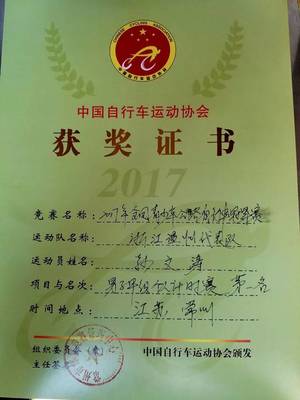 CHINESE CYCLING ASSOCIATION
中国自行车运动协会
中国自行车运动协会
获奖证书
2017
竞赛名称：2017年全国青少年公路自行车锦标赛
运动队名称：浙江温州代表队
运动员姓名：孙文涛
项目与名次：男子 计时赛 第 名
时间地点：江苏，常州
组织委员会（章）
主任签
中国自行车运动协会颁发